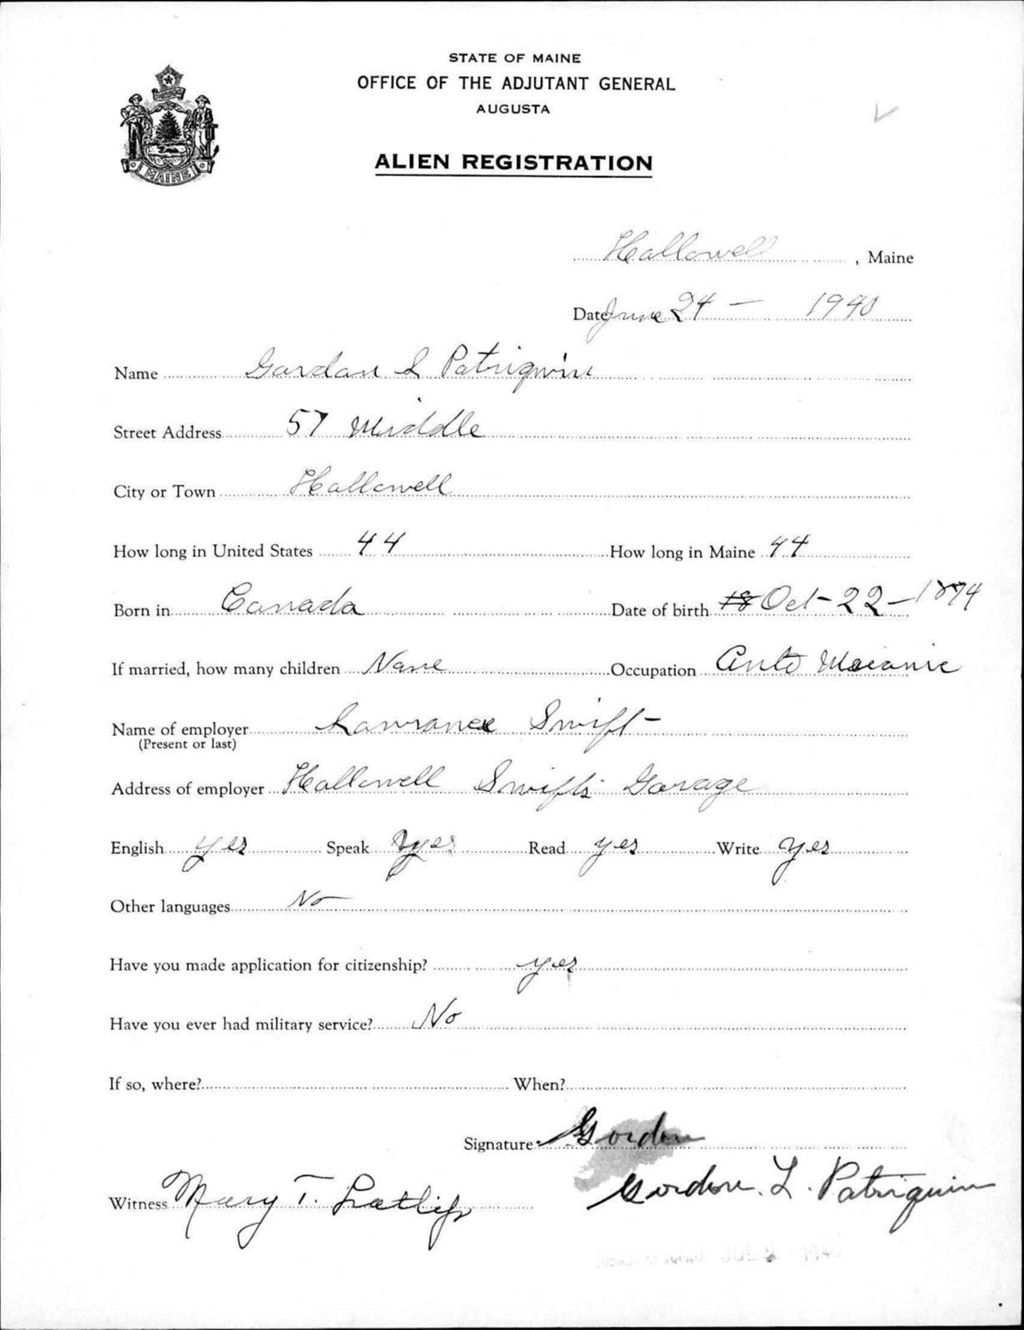 STATE OF MAINE
OFFICE OF THE ADJUTANT GENERAL
AUGUSTA
ALIEN REGISTRATION
MAINE
Hallowell, Maine
Date June 24 - 1940
Name Gordan L Patriquin
Street Address 57 Middle
City or Town Hallowell
How long in United States 44 How long in Maine 44
Born in Canada Date of birth 18 Oct-22-1894
If married, how many children None Occupation Auto Mecanic
Name of employer Lawrance Swift
(Present or last)
Address of employer Hallowell Swifts Garage
English yes Speak yes Read yes Write yes
Other languages No
Have you made application for citizenship? yes
Have you ever had military service? No
If so, where? When?
Signature Gordon
Gordon. L. Patriquin
Witness Mary T.